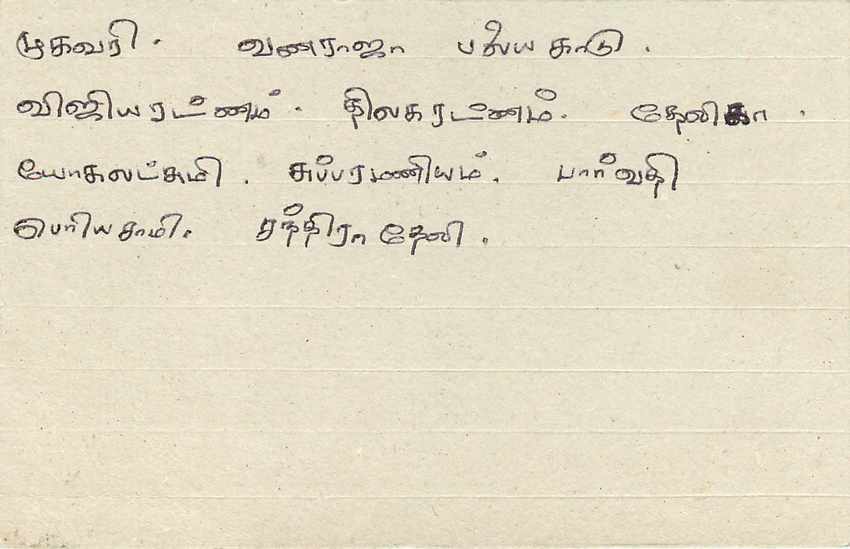 முகவரி. வனராஜா பலைய காடு.
விஜியரட்ணம். திலகரட்ணம். தேவிகா.
யோகலட்சுமி. சுப்பரமணியம். பார்வதி
பெரியசாமி. சந்திரா தேவி.